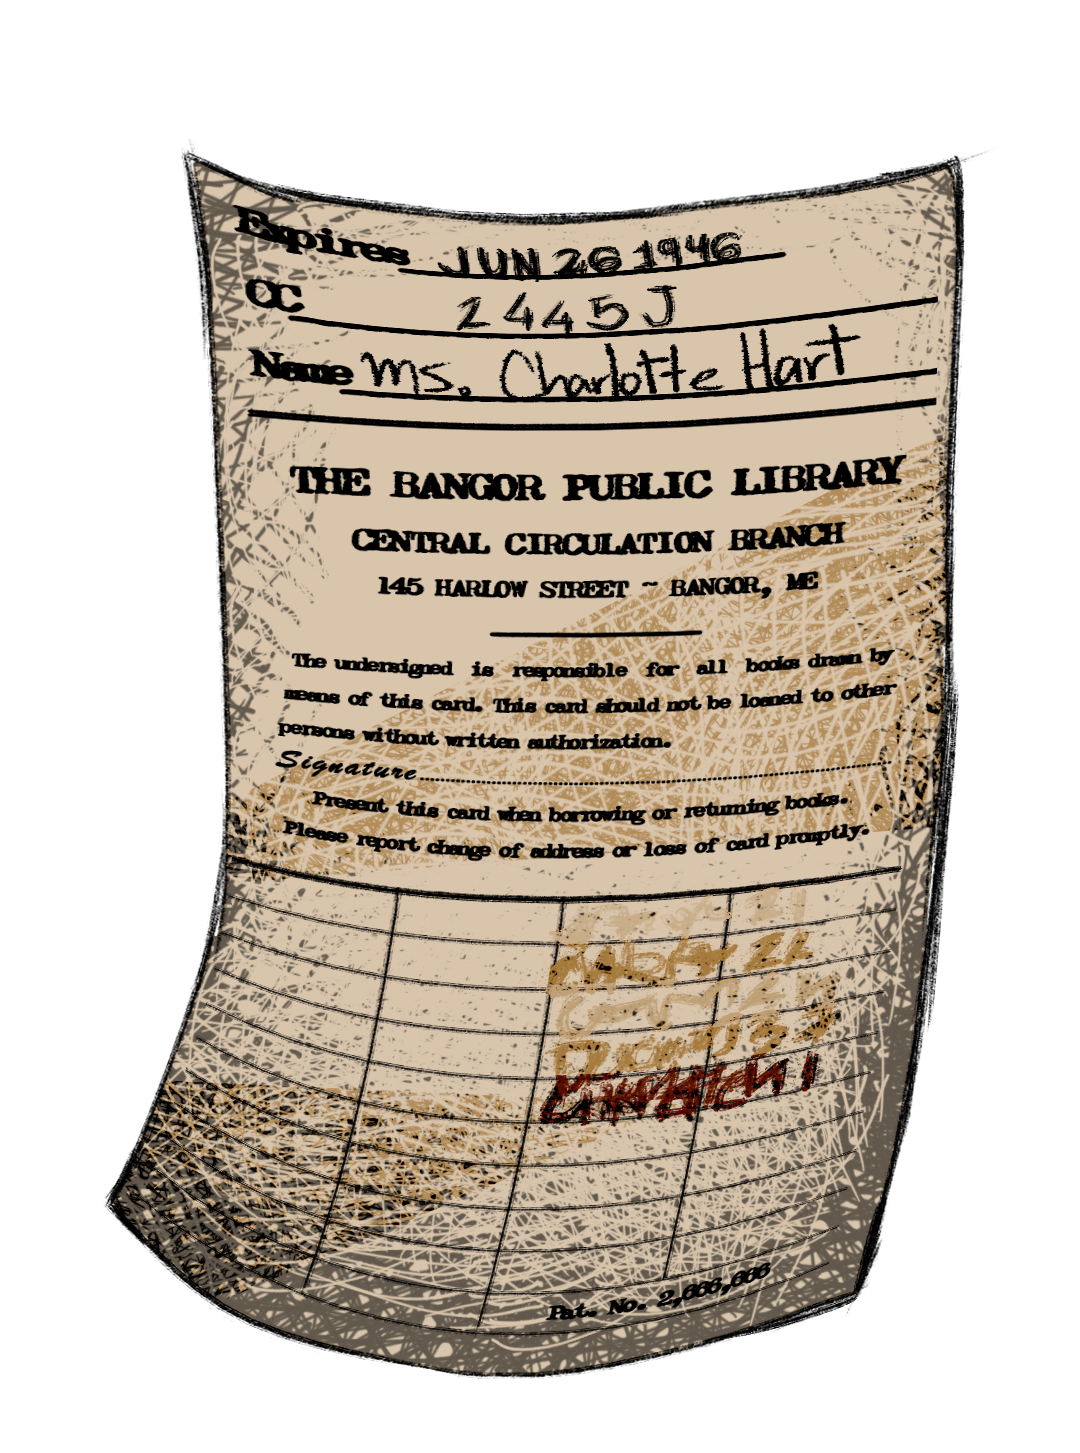 Expires JUN 26 1946
CC 2445J
Name Ms. Charlotte Hart
THE BANGOR PUBLIC LIBRARY
CENTRAL CIRCULATION BRANCH
145 HARLOW STREET ~ BANGOR, ME
The undersigned is responsible for all books drawn by
means of this card. This card should not be loaned to other
persons without written authorization.
Signature
Present this card when borrowing or returning books.
Please report change of address or loss of card promptly.
Pat. No. 2,666,666